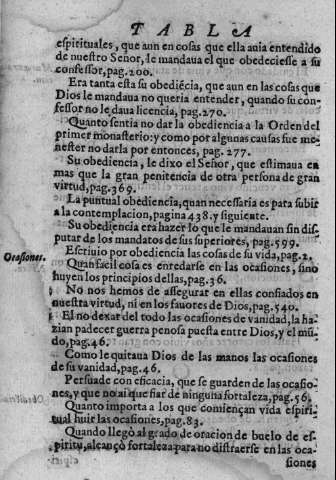 TABLA
espirituales, que aun en cosas que ella auia entendido
de nuestro Señor, le mandaua el que obedeciesse a su
confessor, pag. 200.
Era tanta esta su obediēcia, que aun en las cosas que
Dios le mandaua no queria entender, quando su con-
fessor no le daua licencia, pag. 270.
Quanto sentia no dar la obediencia a la Orden del
primer monasterio: y como por algunas causas fue me-
nester no darla por entonces, pag. 277.
Su obediencia, le dixo el Señor, que estimaua en
mas que la gran penitencia de otra persona de gran
virtud, pag. 369.
La puntual obediencia, quan necessaria es para subir
a la contemplacion, pagina 438. y siguiente.
Su obediencia era hazer lo que le mandauan sin dis-
putar de los mandatos de sus superiores, pag. 599.
Escriuio por obediencia las cosas de su vida, pag. 2.
Ocasiones.
Quan facil cosa es enredarse en las ocasiones, si no
huyen los principios dellas, pag. 36.
No nos hemos de assegurar en ellas confiados en
nuestra virtud, ni en los fauores de Dios, pag. 540.
El no dexar del todo las ocasiones de vanidad, la ha-
zian padecer guerra penosa puesta entre Dios, y el mū-
do, pag. 46.
Como le quitaua Dios de las manos las ocasiones
de su vanidad, pag. 46.
Persuade con eficacia, que se guarden de las ocasio-
nes, y que no ai que fiar de ninguna fortaleza, pag. 56.
Quanto importa a los que comiençan vida espiri-
tual huir las ocasiones, pag. 83.
Quando llegò al grado de oracion de buelo de es-
piritu, alcançò fortaleza para no distraerse en las oca-
siones